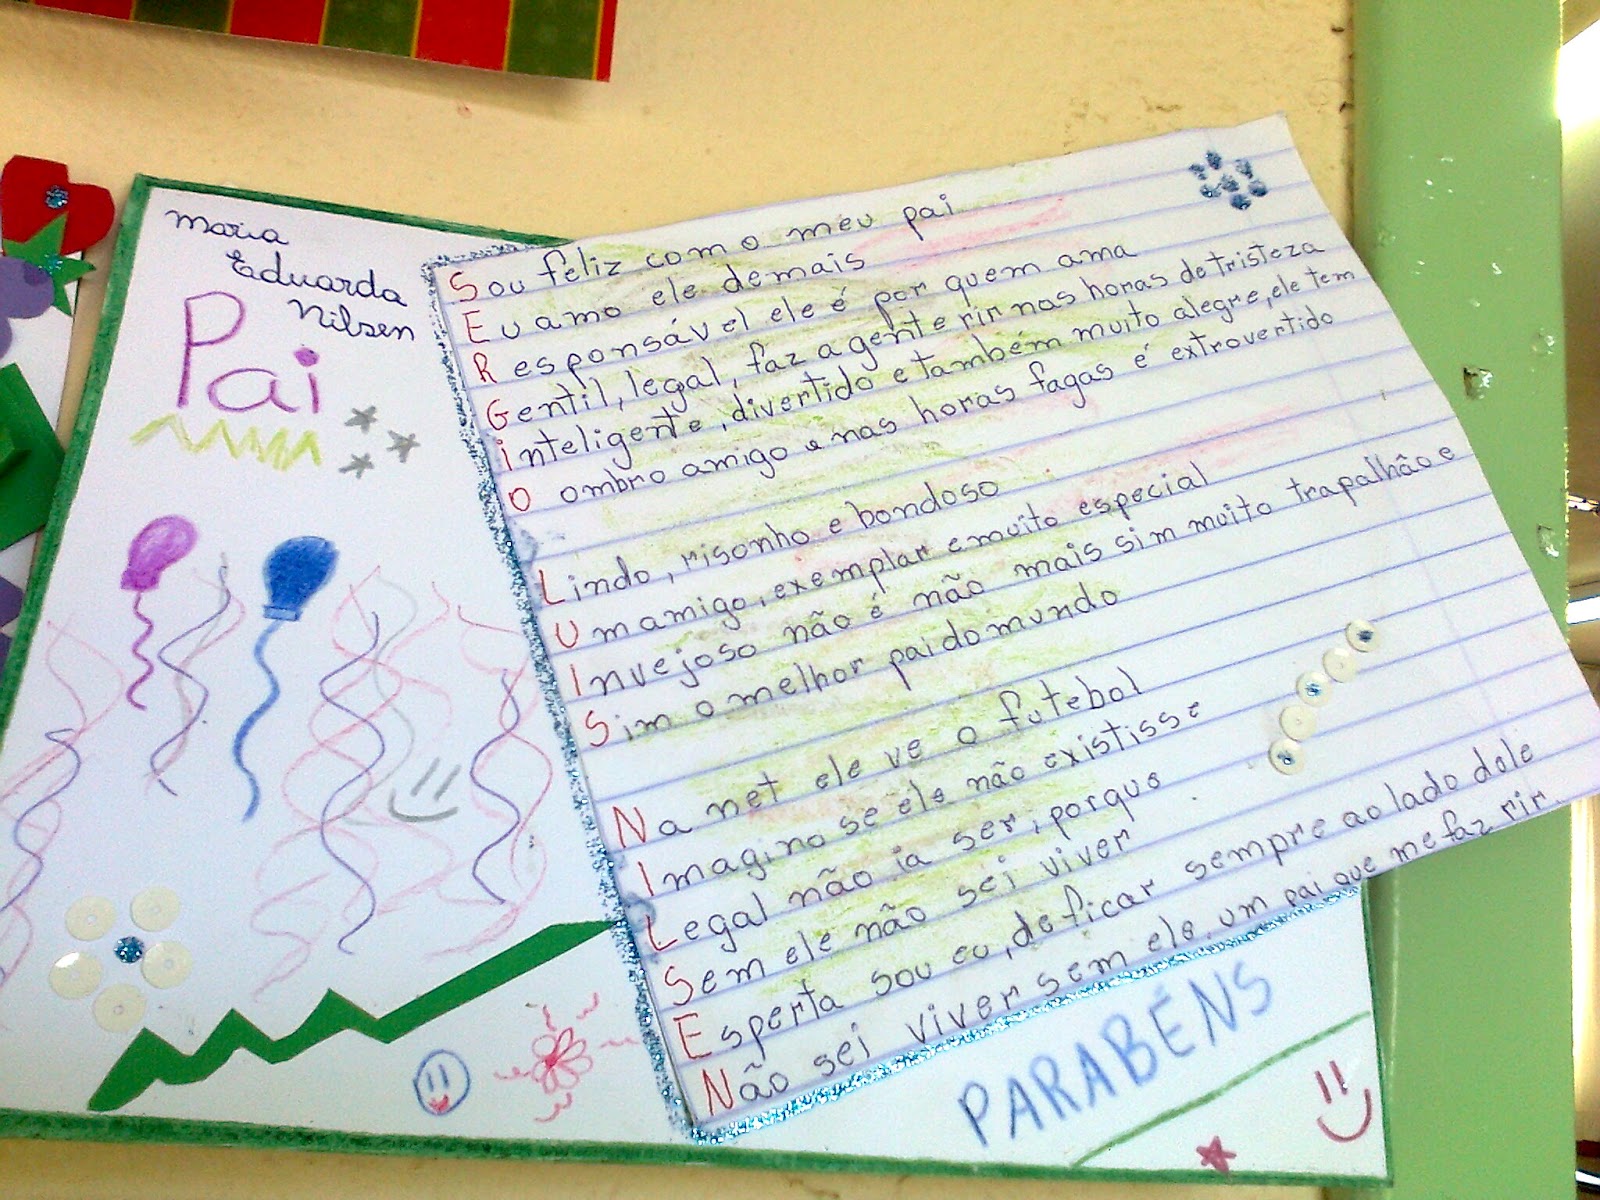 Maria
Eduarda
Nilsen
Pai
Sou feliz com o meu pai
Eu amo ele demais
Responsável ele é por quem ama
Gentil, legal, faz agente rir nas horas de tristeza
inteligente, divertido e também muito alegre, ele tem
o ombro amigo e nas horas fagas é extrovertido
Lindo, risonho e bondoso
Um amigo, exemplar e muito especial
Invejoso não é não mais sim muito trapalhão e
Sim o melhor pai do mundo
Na net ele ve o futebol
Imagino se ele não existisse
Legal não ia ser, porque
Sem ele não sei viver
Esperta sou eu, de ficar sempre ao lado dele
Não sei viver sem ele, um pai que me faz rir
PARABÉNS